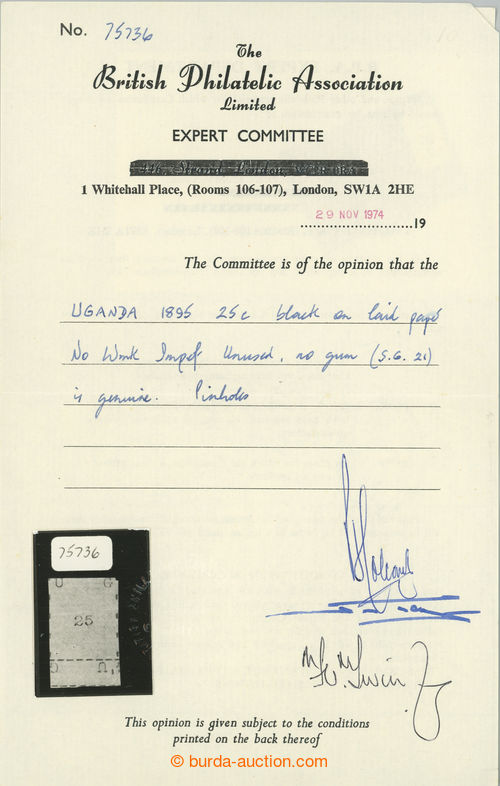 No. 75736
The
British Philatelic Association
Limited
EXPERT COMMITTEE
1 Whitehall Place, (Rooms 106-107), London, SW1A 2HE
29 NOV 1974
19
The Committee is of the opinion that the
UGANDA 1895 25c black on laid paper
No Wmk Imperf Unused, no gum (S.G. 26)
is genuine. Pinholes
75736
U G
25
U
This opinion is given subject to the conditions
printed on the back thereof
© burda-auction.com